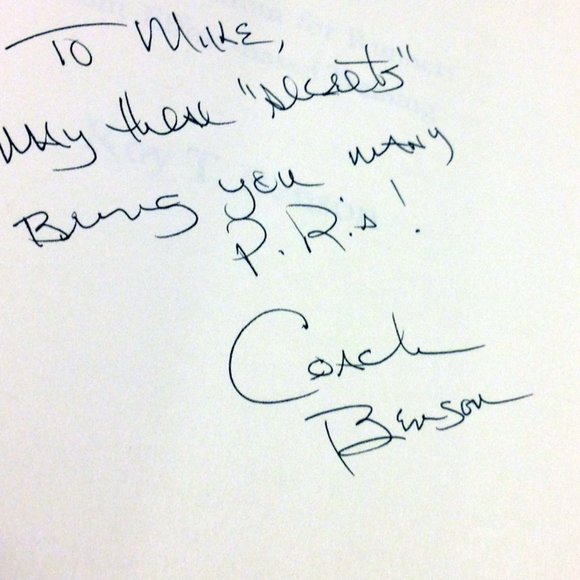 To Mike,
May these "secrets"
Bring you many
P.R.'s!
Coach
Benson